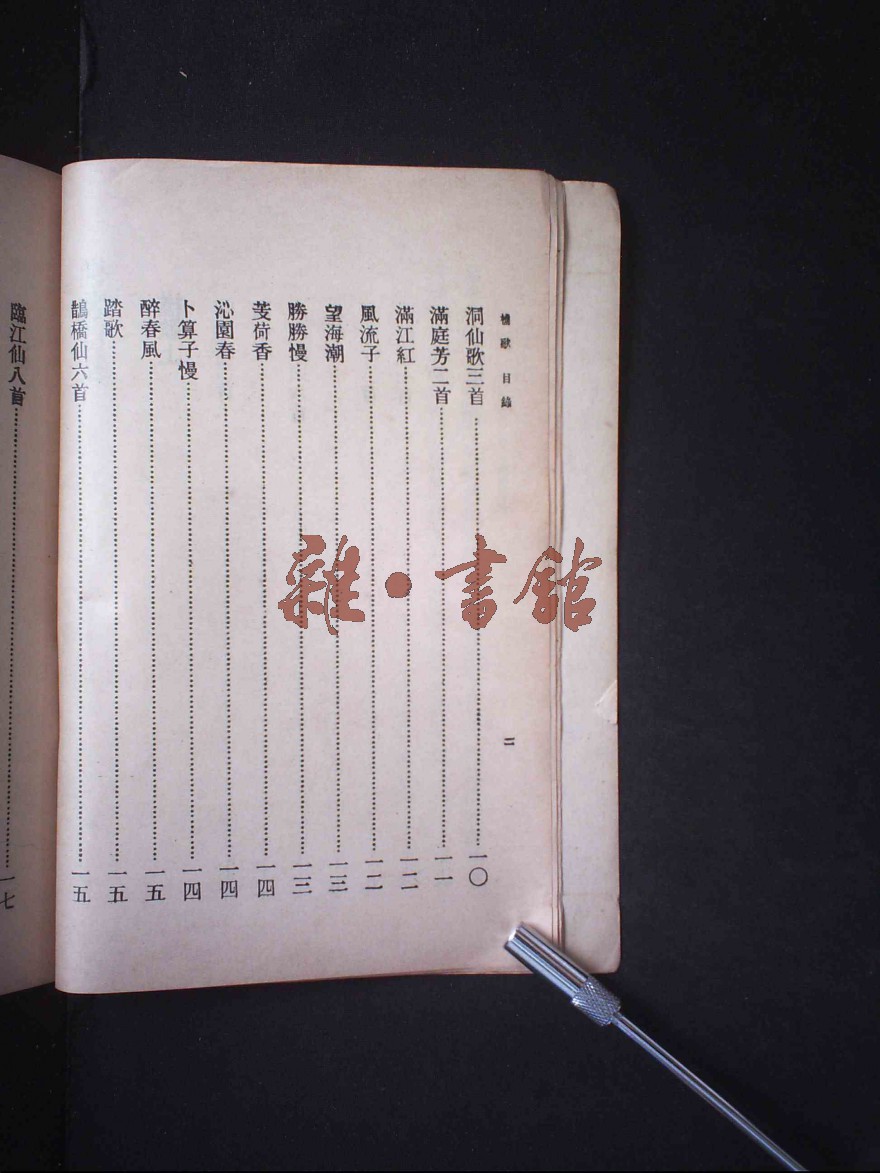 樵歌 目錄
二
洞仙歌三首⋯⋯一〇
滿庭芳二首⋯⋯一一
滿江紅⋯⋯一二
風流子⋯⋯一二
望海潮⋯⋯一三
勝勝慢⋯⋯一三
芰荷香⋯⋯一四
沁園春⋯⋯一四
卜算子慢⋯⋯一四
醉春風⋯⋯一五
踏歌⋯⋯一五
鵲橋仙六首⋯⋯一五
臨江仙八首⋯⋯一七
雜·書館